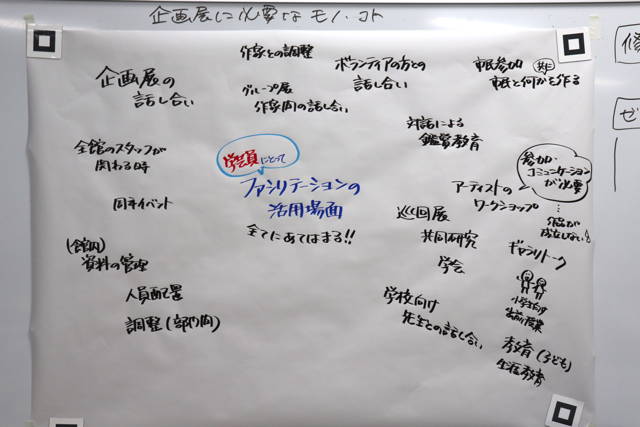 企画展に必要なモノ・コト
企画展の
話し合い
作家との調整
グループ展
作家間の話し合い
ボランティアの方との
話し合い
市民参加 共生
市民と何かを作る
対話による
鑑賞教育
全館のスタッフが
関わる時
学芸員にとって
ファシリテーションの
活用場面
全てにあてはまる!!
同時イベント
(館内)
資料の管理
人員配置
調整(部門間)
参加・
コミュニケーション
が必要
アーティストの
ワークショップ
作品が
成立しない
巡回展
共同研究
学会
ギャラリートーク
小学生向け
学校向け
先生との話し合い
教育(子ども)
生涯教育